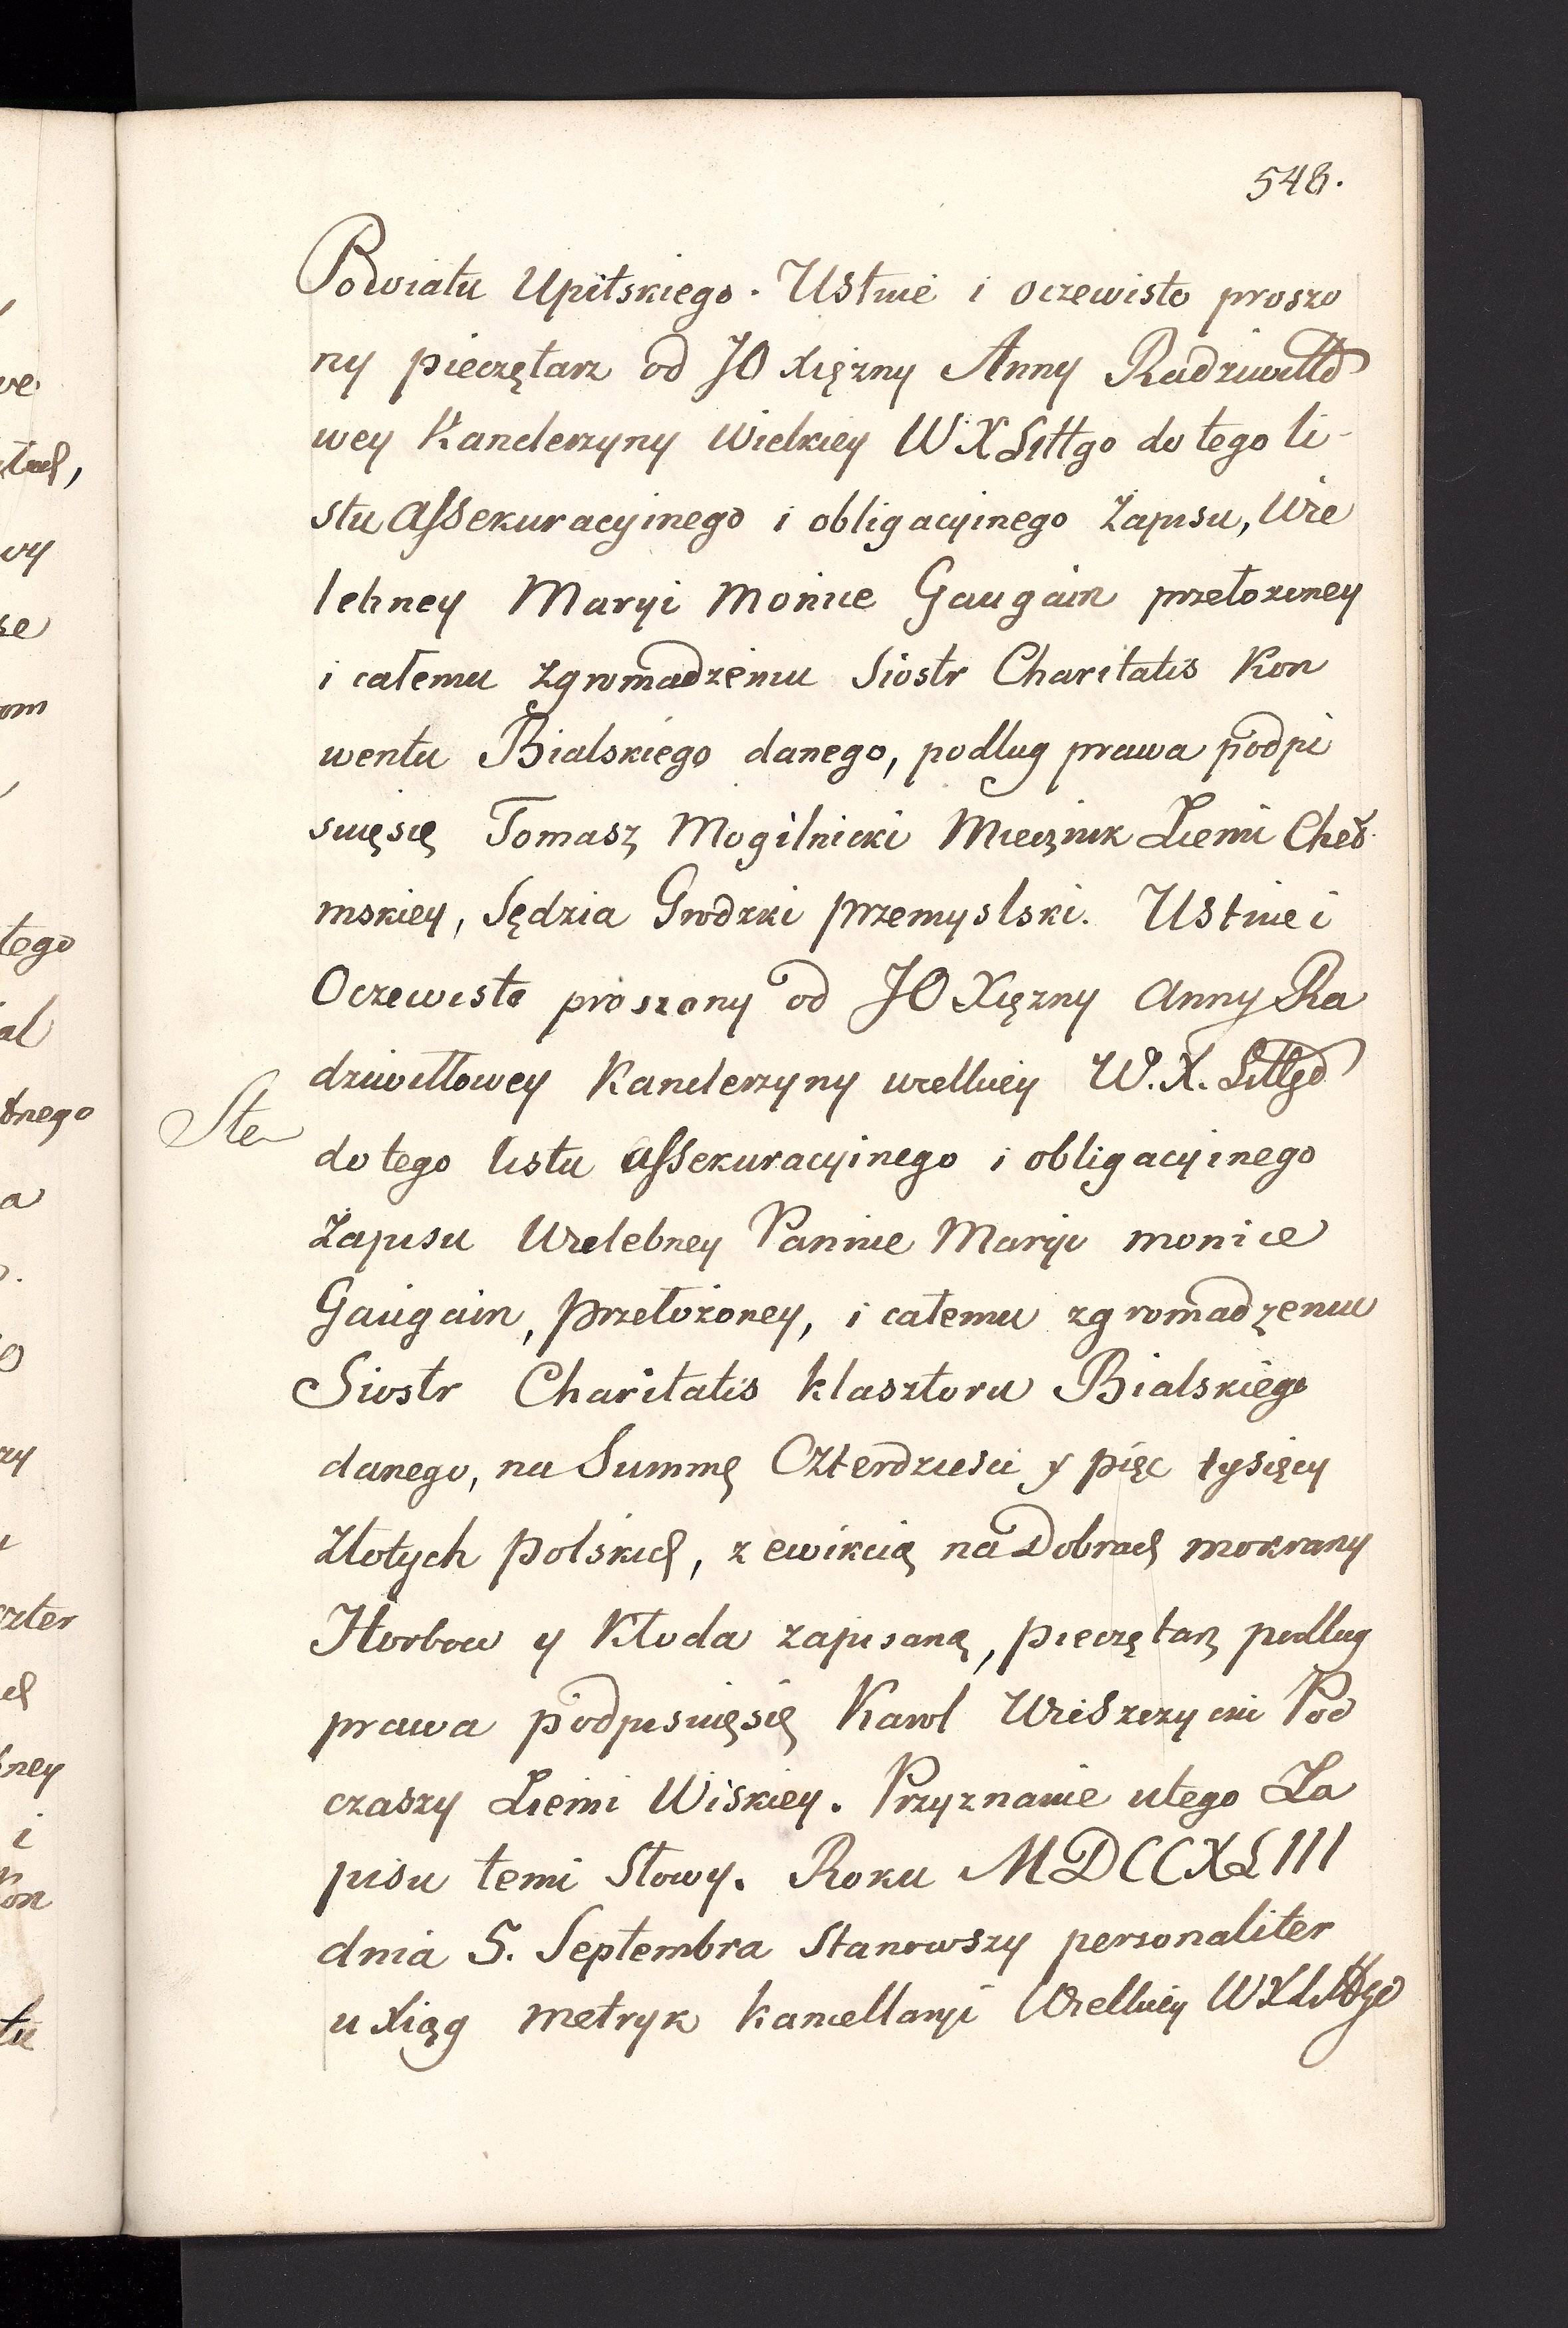 548.
Powiatu Upitskiego. Ustnie i oczewisto proszo
ny pieczętarz od JO Xiężny Anny Radziwiłło
wey Kanclerzyny Wielkiey W X Littgo do tego li-
stu Assekuracyinego i obligacyinego Zapisu, Wie
lebney Maryi Monice Gaugain przełożoney
i całemu zgromadzeniu Siostr Charitatis Kon
wentu Bialskiego danego, podlug prawa podpi
suięsię Tomasz Mogilnicki Miecznik Ziemi Cheł-
mskiey, Sędzia Grodzki przemyslski. Ustnie i
Oczewisto proszony od JO Xiężny Anny Ra
dziwiłłowey Kanclerzyny wielkiey W. X. Littgo
do tego listu assekuracyinego i obligacyinego
Zapisu Wielebney Pannie Maryi monice
Gaugain, Przełożoney, i całemu zgromadzeniu
Siostr Charitatis klasztoru Bialskiego
danego, na Summę Czterdziesci y pięc tysięcy
Złotych polskich, z ewikcią na Dobrach mokrany
Horbow y Kłoda zapisaną, pieczętarz podlug
prawa podpisuięsię Karol Wiszczycki Pod
czaszy Ziemi Wiskiey. Przyznanie utego Za
pisu temi Słowy. Roku MDCCXLIII
dnia 5. Septembra Stanowszy personaliter
u xiąg metryk kancellaryi Wielkiey WXLittgo
Ste